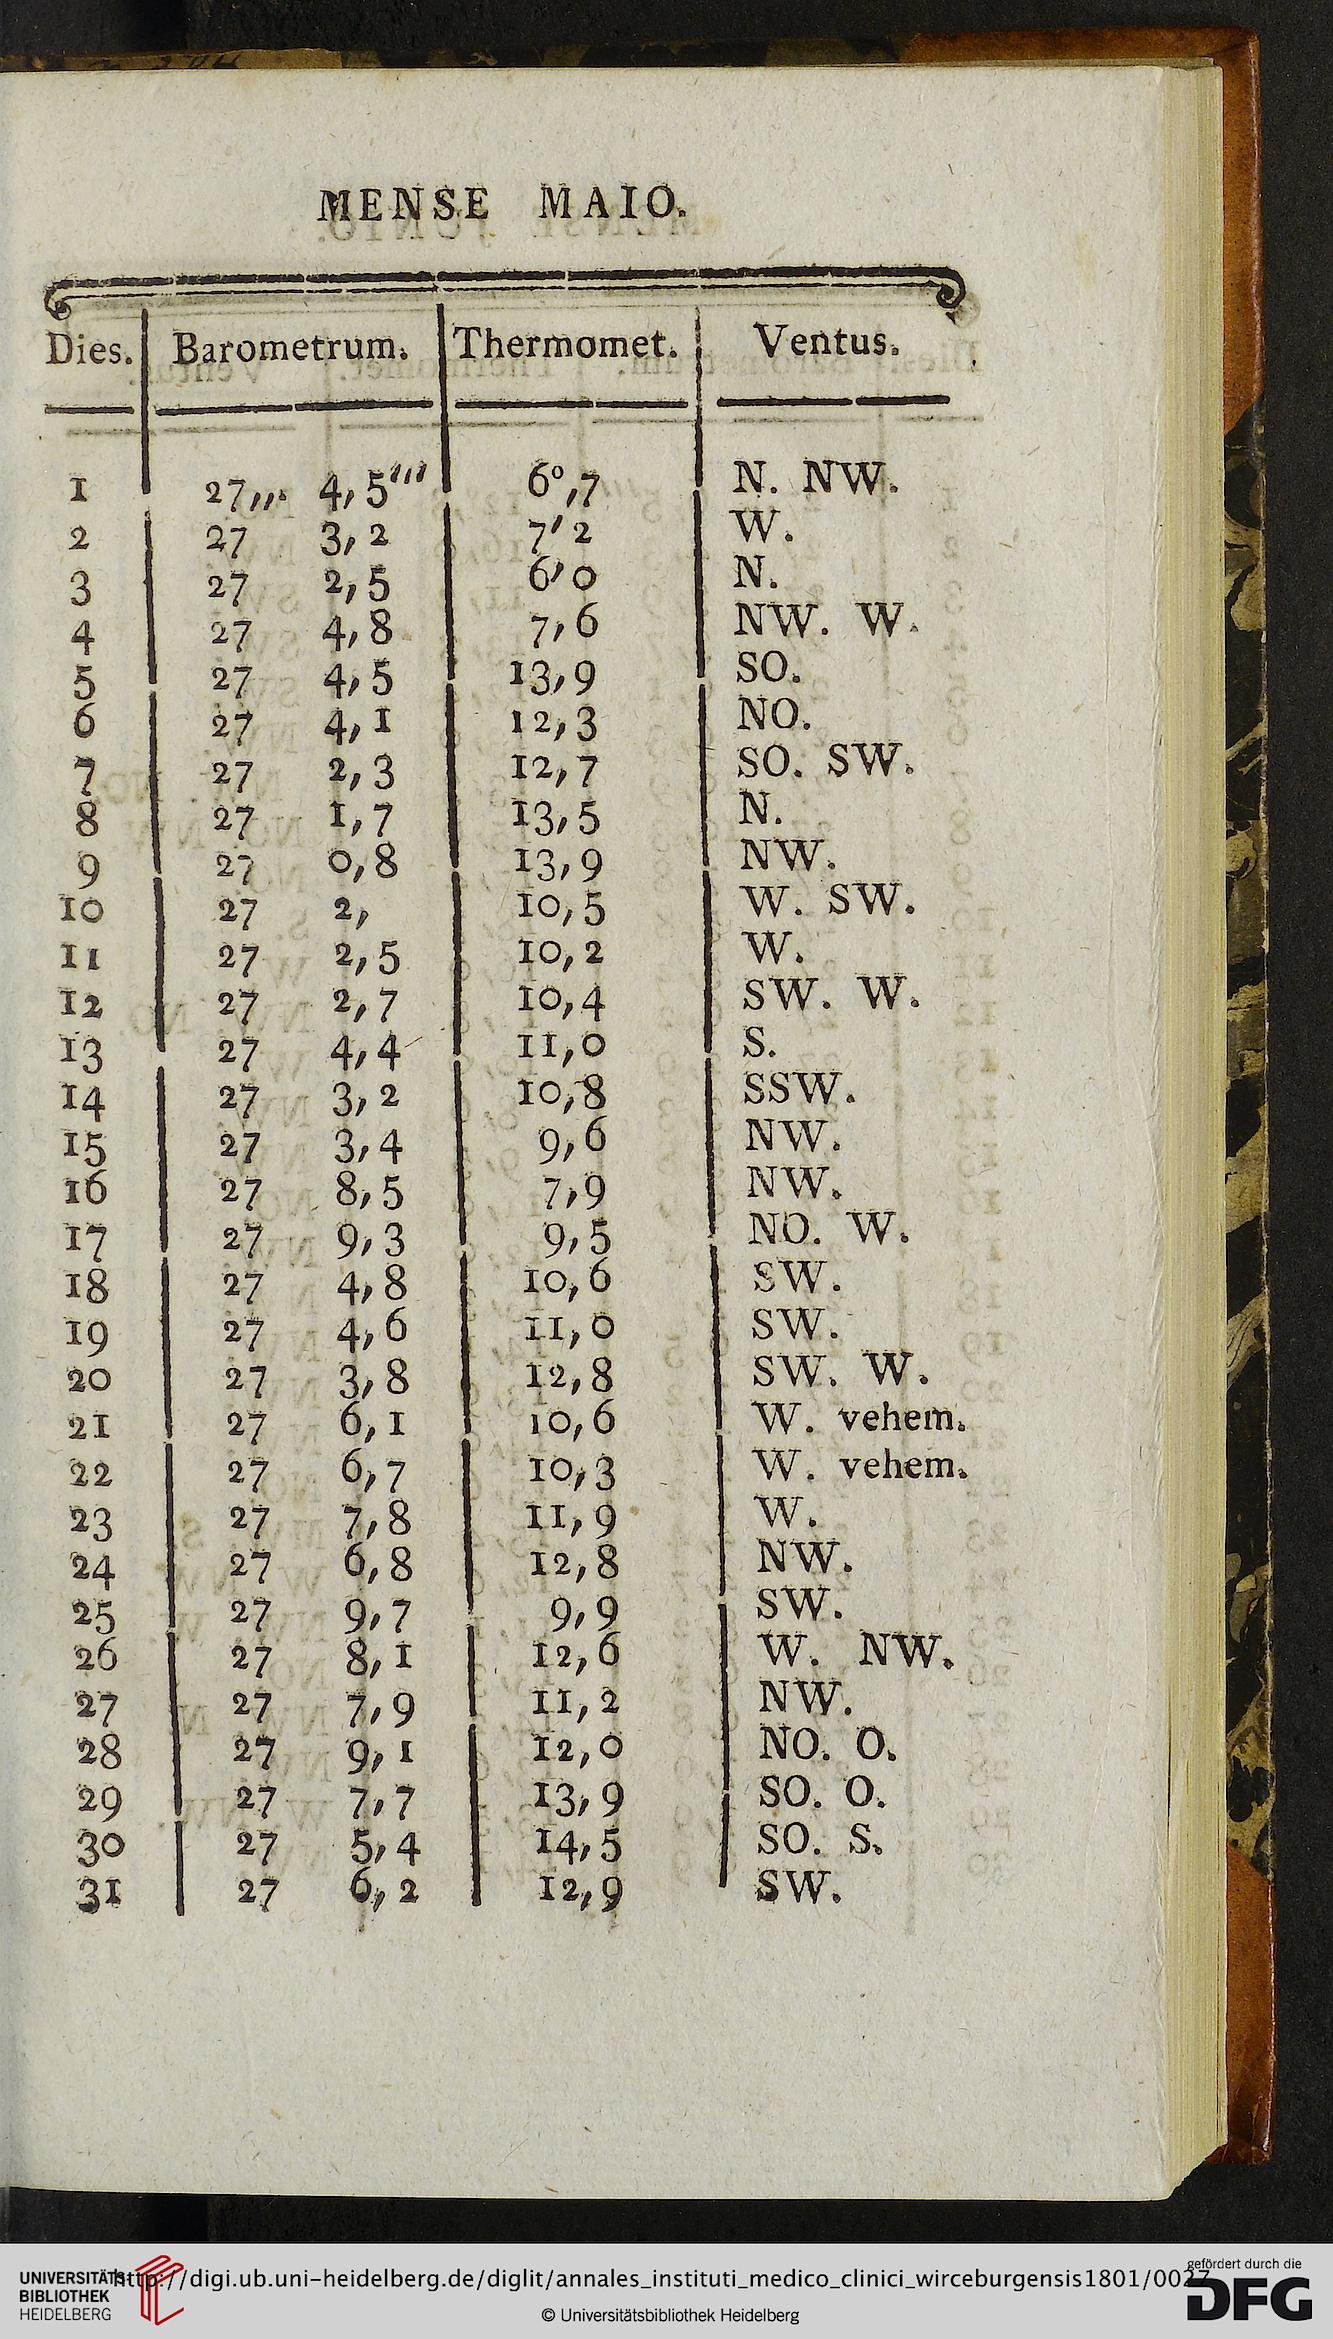 MENSE MAIO.
Dies. Barometrum. Thermomet. Ventus.
1 27,,, 4,5''' 6°,7 N. NW.
2 27 3,2 7,2 W.
3 27 2,5 6,0 N.
4 27 4,8 7,6 NW. W.
5 27 4,5 13,9 SO.
6 27 4,1 12,3 NO.
7 27 2,3 12,7 SO. SW.
8 27 1,7 13,5 N.
9 27 0,8 13,9 NW.
10 27 2, 10,5 W. SW.
11 27 2,5 10,2 W.
12 27 2,7 10,4 SW. W.
13 27 4,4 11,0 S.
14 27 3,2 10,8 SSW.
15 27 3,4 9,6 NW.
16 27 8,5 7,9 NW.
17 27 9,3 9,5 NO. W.
18 27 4,8 10,6 SW.
19 27 4,6 11,0 SW.
20 27 3,8 12,8 SW. W.
21 27 6,1 10,6 W. vehem.
22 27 6,7 10,3 W. vehem.
23 27 7,8 11,9 W.
24 27 6,8 12,8 NW.
25 27 9,7 9,9 SW.
26 27 8,1 12,6 W. NW.
27 27 7,9 11,2 NW.
28 27 9,1 12,0 NO. O.
29 27 7,7 13,9 SO. O.
30 27 5,4 14,5 SO. S.
31 27 6,2 12,9 SW.
UNIVERSITÄTS-
BIBLIOTHEK
HEIDELBERG
http://digi.ub.uni-heidelberg.de/diglit/annales_instituti_medico_clinici_wirceburgensis1801/0027
© Universitätsbibliothek Heidelberg
gefördert durch die
DFG